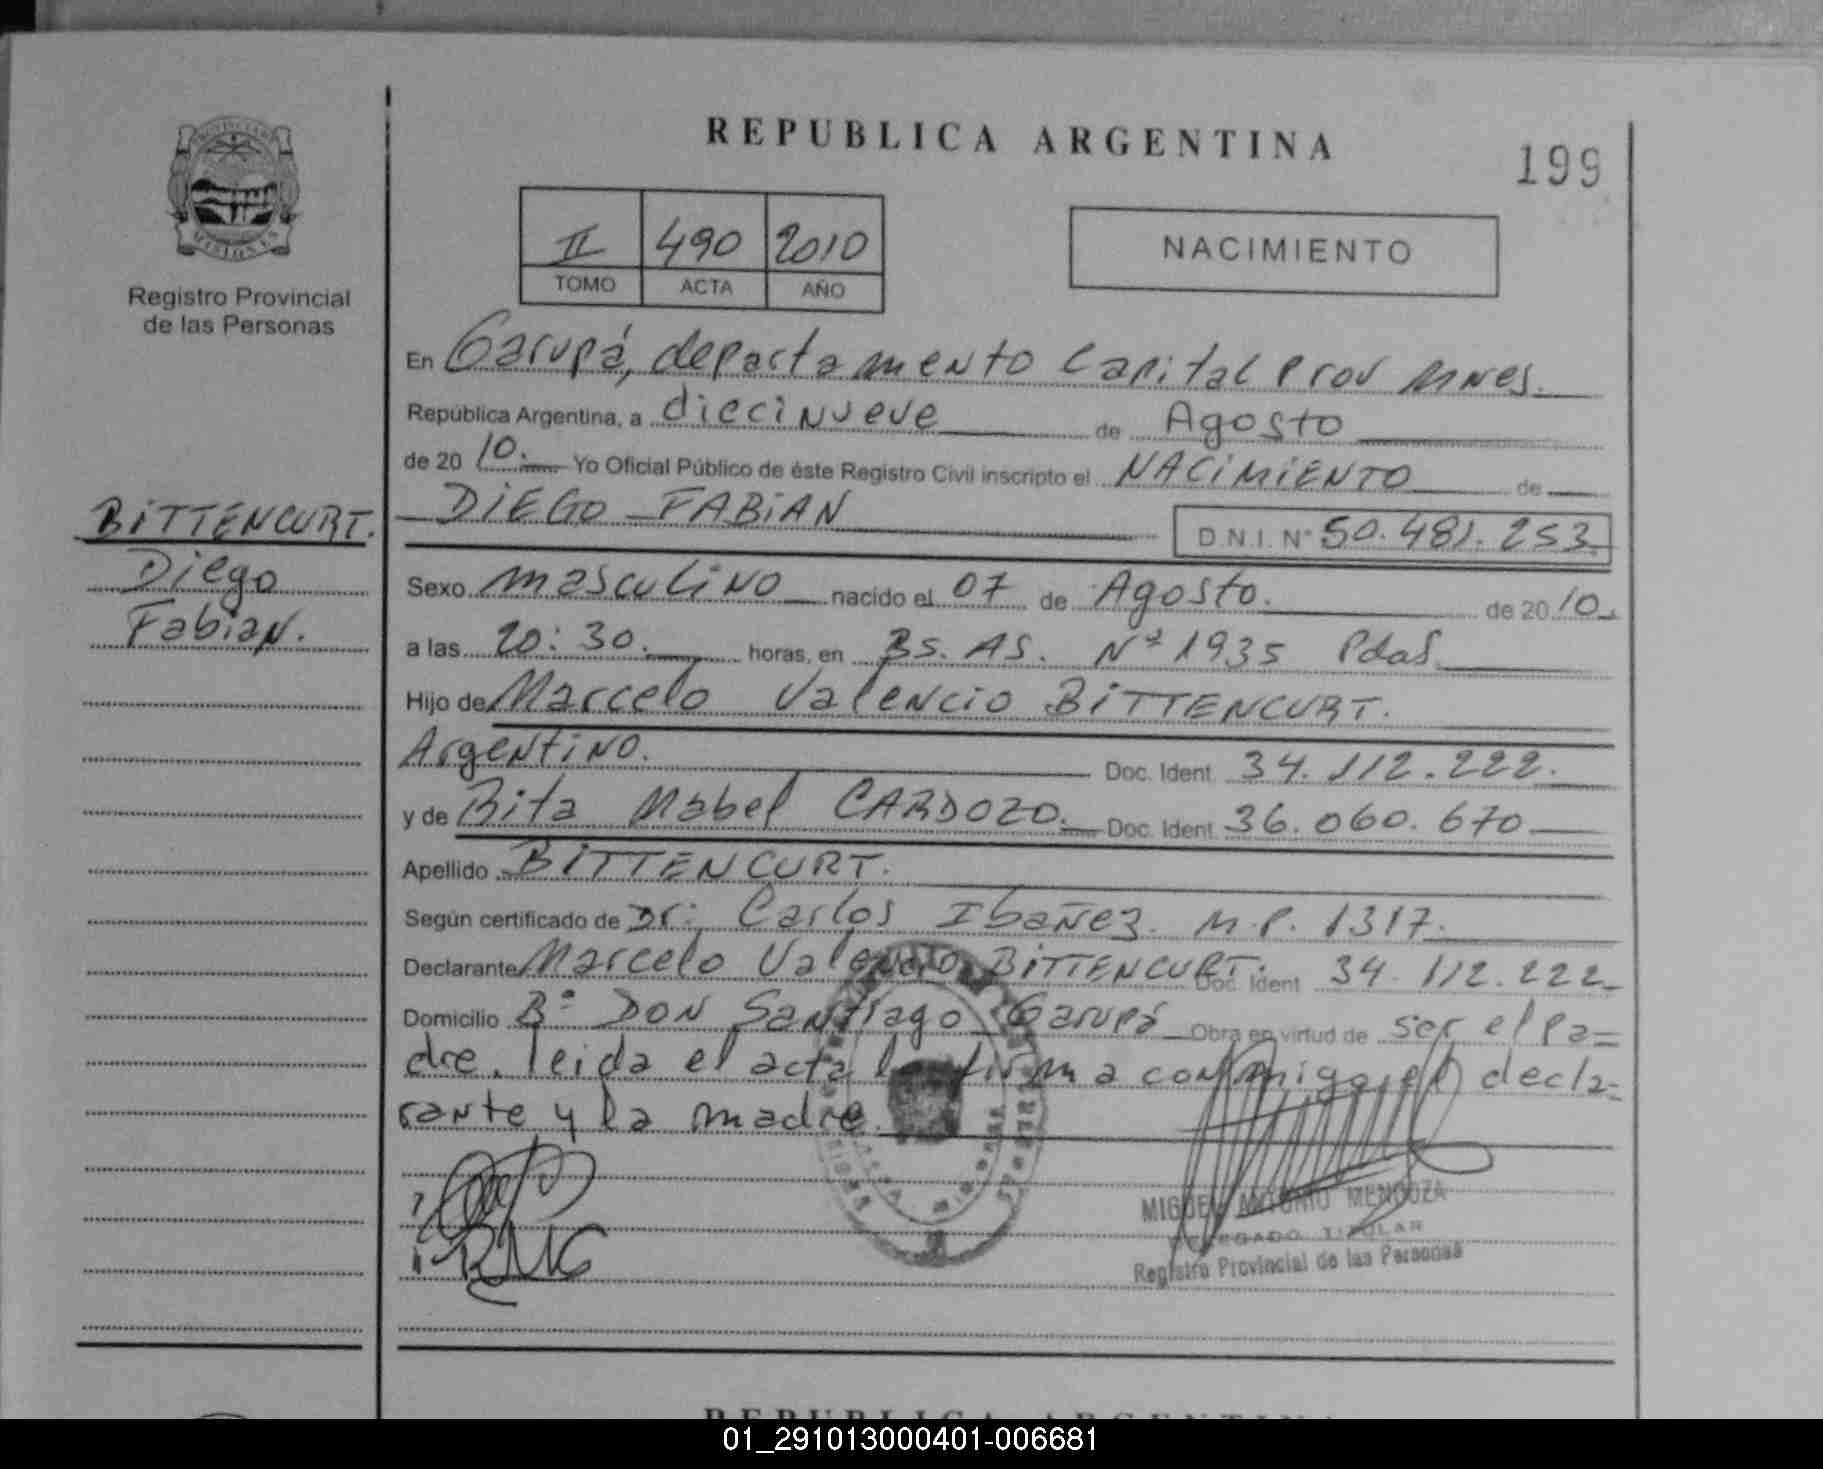 REPUBLICA ARGENTINA
199
PROVINCIA DE
MISIONES
Registro Provincial
de las Personas
II 490 2010
TOMO ACTA AÑO
NACIMIENTO
En Garupá, departamento Capital Prov Mnes.
República Argentina, a diecinueve de Agosto
de 20 10. Yo Oficial Público de éste Registro Civil inscripto el NACIMIENTO de
DIEGO FABIAN
D.N.I. Nº 50.481.253.
BITTENCURT.
Diego
Fabian.
Sexo masculino nacido el 07 de Agosto. de 20 10.
a las 20:30. horas, en Bs. As. Nº 1935 Pdas.
Hijo de Marcelo Valencio BITTENCURT.
Argentino. Doc. Ident. 34.112.222.
y de Rita Mabel CARDOZO. Doc. Ident. 36.060.670
Apellido BITTENCURT.
Según certificado de Dr: Carlos Ibañez. M.P. 1317.
Declarante Marcelo Valencio BITTENCURT. Doc. Ident 34.112.222
Domicilio Bº Don Santiago Garupá Obra en virtud de ser el Pa=
dre. leida el acta la firma conmigo, el decla=
rante y la madre.
MIGUEL ANTONIO MENDOZA
DELEGADO TITULAR
Registro Provincial de las Personas
RMC
REPUBLICA ARGENTINA
01_291013000401-006681